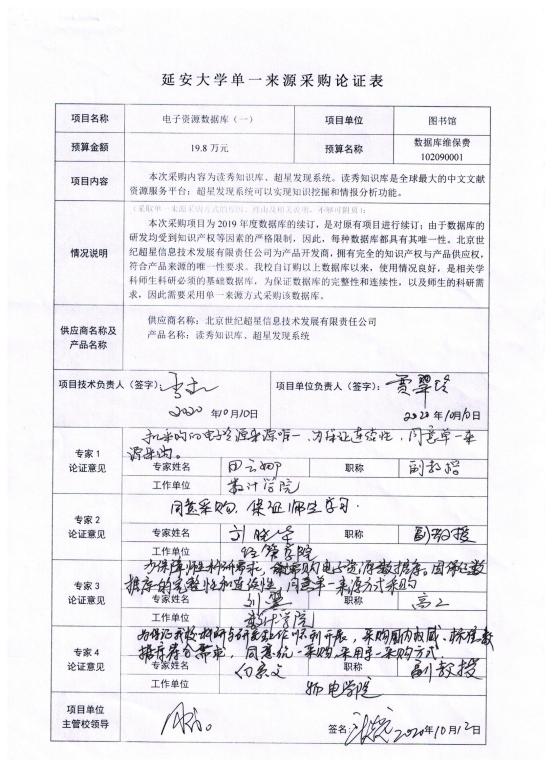 延安大学单一来源采购论证表
项目名称 电子资源数据库（一） 项目单位 图书馆
预算金额 19.8 万元 预算名称 数据库维保费
102090001
项目内容
本次采购内容为读秀知识库、超星发现系统。读秀知识库是全球最大的中文文献
资源服务平台；超星发现系统可以实现知识挖掘和情报分析功能。
情况说明
（采取单一来源采购方式的原因、理由及相关说明，不够可附页）：
本次采购项目为 2019 年度数据库的续订，是对原有项目进行续订；由于数据库的
研发均受到知识产权等因素的严格限制，因此，每种数据库都具有其唯一性。北京世
纪超星信息技术发展有限责任公司为产品开发商，拥有完全的知识产权与产品供应权，
符合产品来源的唯一性要求。我校自订购以上数据库以来，使用情况良好，是相关学
科师生科研必须的基础数据库，为保证数据库的完整性和连续性，以及师生的科研需
求，因此需要采用单一来源方式采购该数据库。
供应商名称及
产品名称
供应商名称：北京世纪超星信息技术发展有限责任公司
产品名称：读秀知识库、超星发现系统
项目技术负责人（签字）： 项目单位负责人（签字）：贾翠玲
2020 年10月10日 2020 年10月10日
专家 1
论证意见
拟采购的电子资源来源唯一，为保证连续性，同意单一来
源采购。
专家姓名 田云娜 职称 副教授
工作单位 数计学院
专家 2
论证意见
同意采购，保证师生学习.
专家姓名 刘 职称 副教授
工作单位 经管学院
专家 3
论证意见
为保障师生科研需求，购电子资源数据库。因保证数
据库的完整性和连续性，同意单一来源方式采购
专家姓名 刘 职称 高工
工作单位 数计学院
专家 4
论证意见
为保证我校科研与研发工作顺利开展，采购国内权威、标准数
据库符合需求，同意统一采购，采用单一采购方式
专家姓名 职称 副教授
工作单位 物电学院
项目单位
主管校领导
签名： 2020年10月12日